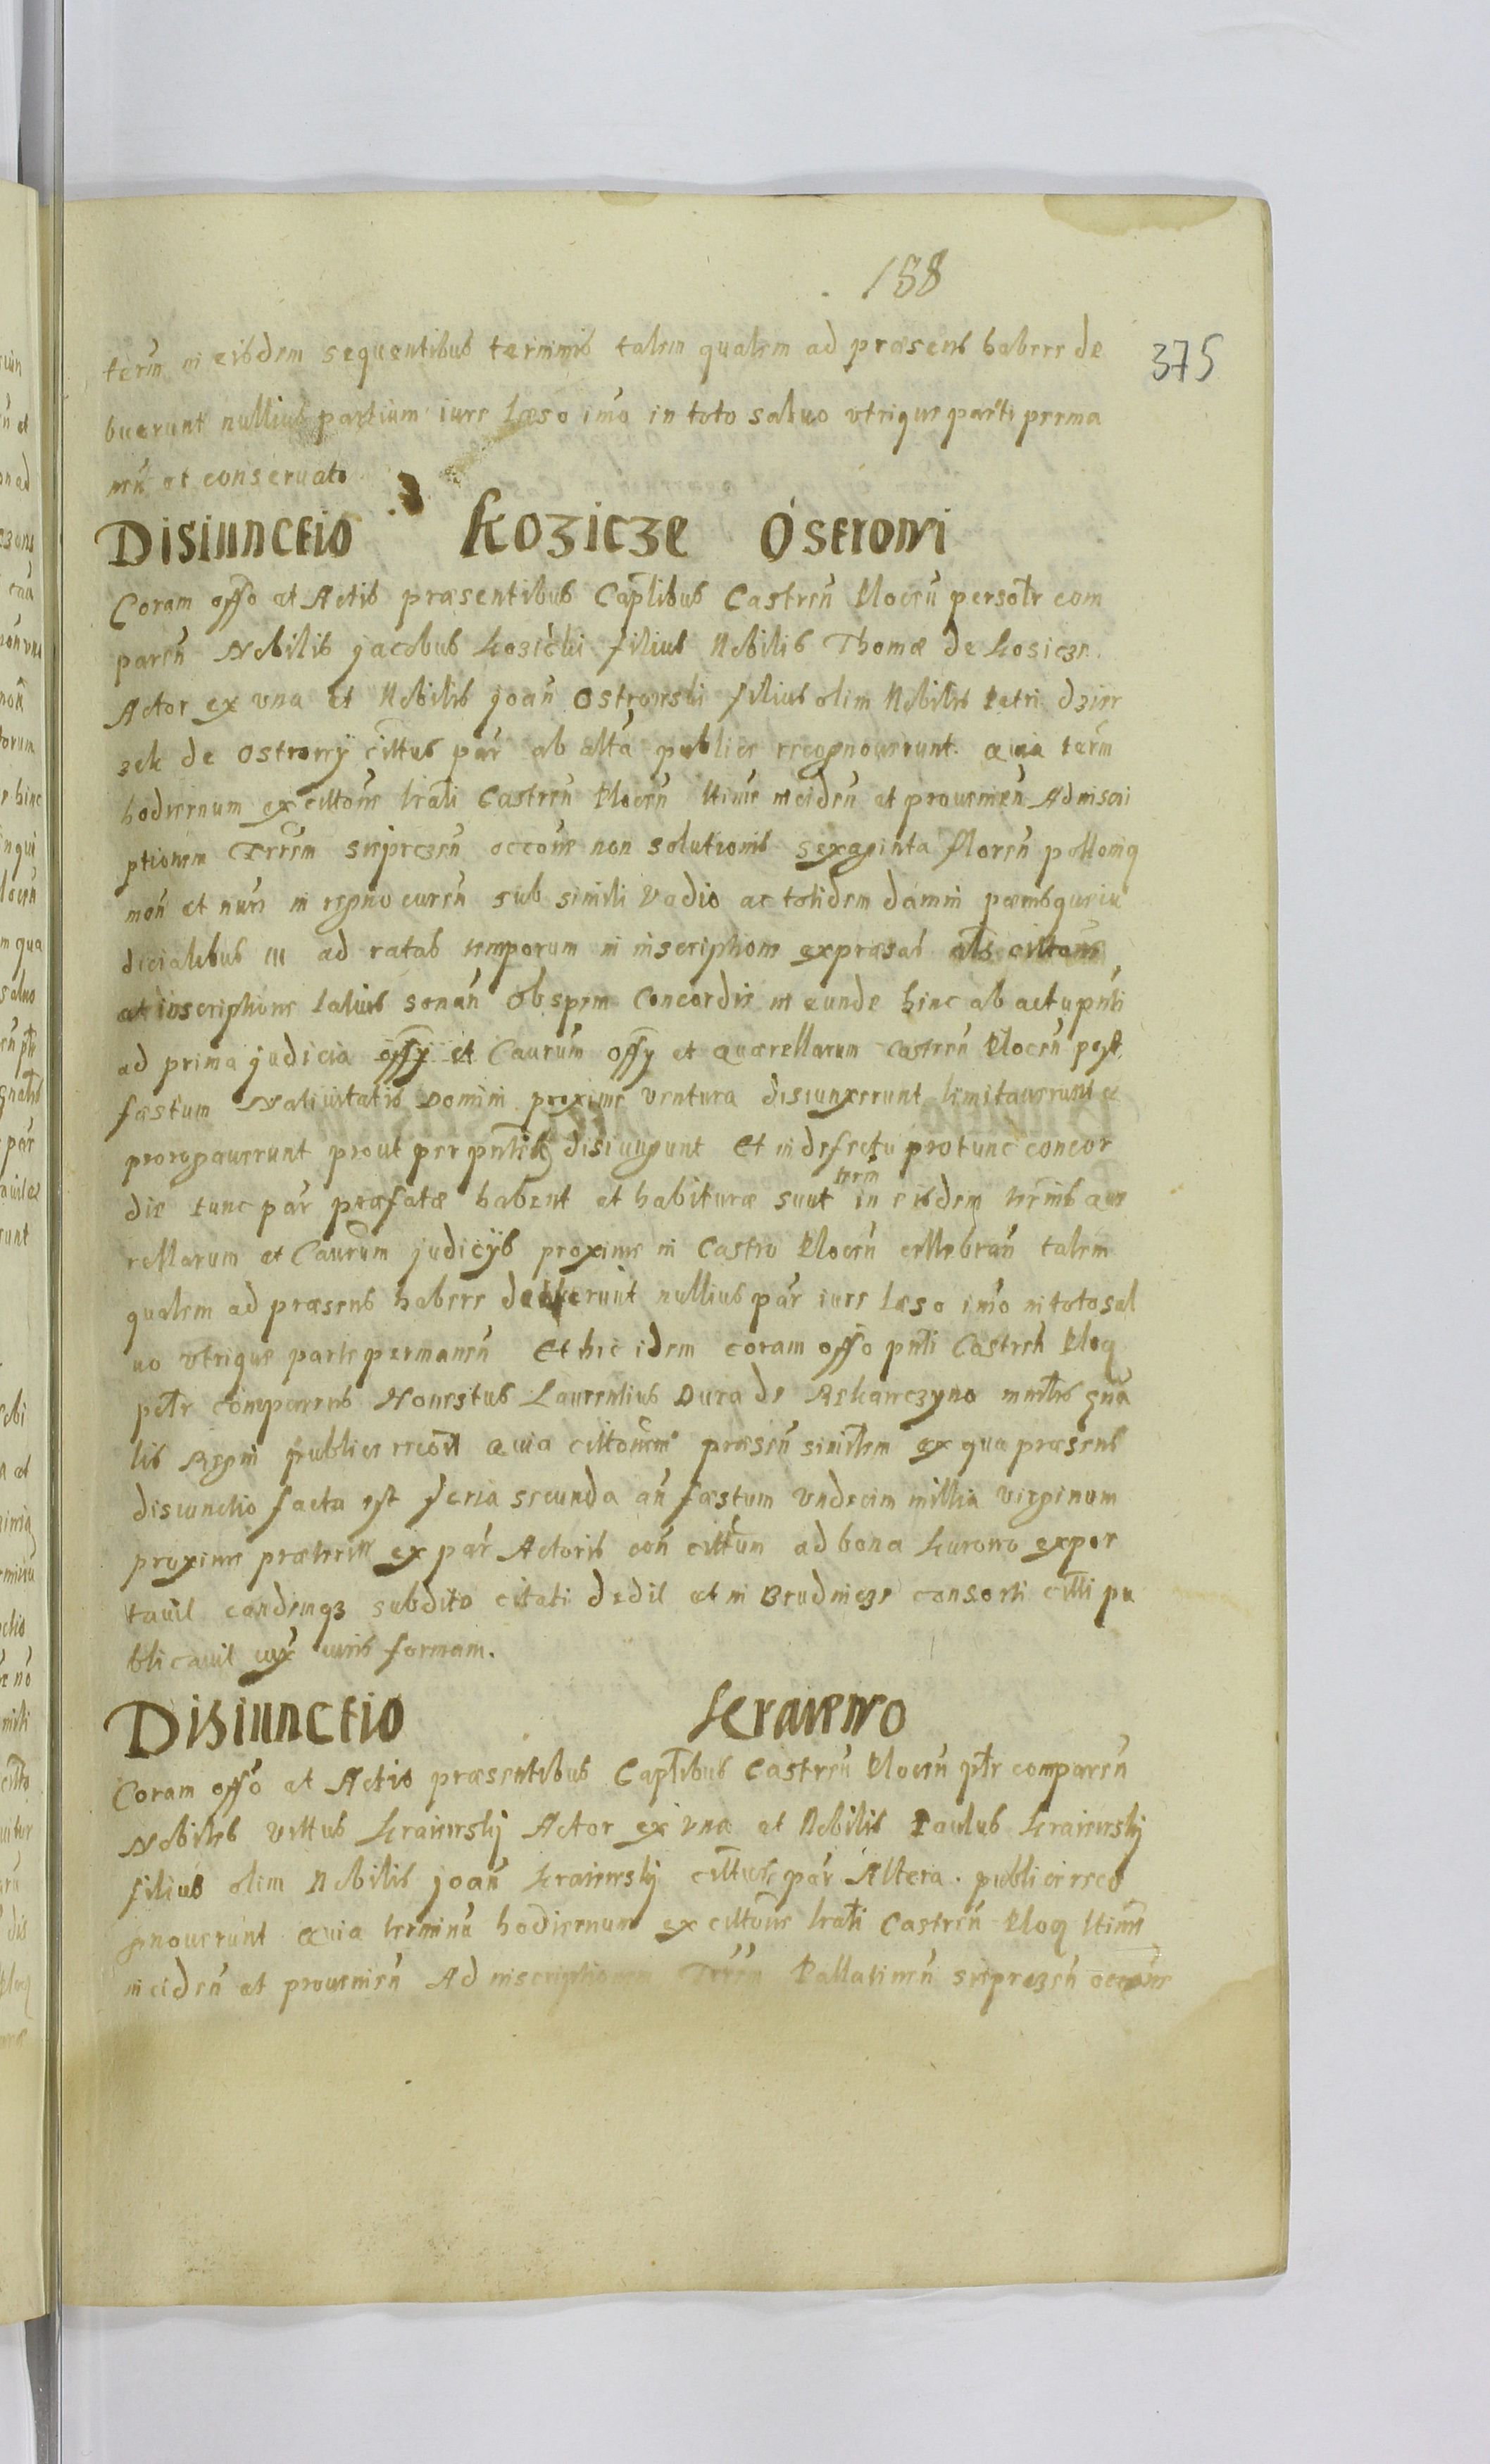 188
375
term̃ in eisdem sequentibus terminis talem qualem ad præsens habere de
buerunt nullius partium iure læso imo in toto saluo vtrique parti perma
neñ et conseruato
Disiunctio Kozicze Ostrowi
Coram offo et Actis præsentibus Captlibus Castreñ Ploceñ persotr com
pareñ Nobilis Jacobus Kozicki filius Nobilis Thomæ de Kosicze.
Actor ex vna et Nobilis Joañ Ostrowski filius olim Nobilis Petri Dzier
zek de Ostrowÿ cittus par̃ ab altã publice recognouerunt. Quia term̃
hodiernum ex cittone lrali Castreñ Ploceñ ltime incideñ et proueniẽn Ad inscri
ptionem Trrem sieprczeñ occõne non solutionis sexaginta floreñ polloniq
moñ et nuñ in regno cureñ sub simili vadio ac totidem damni pœnisque iu
dicialibus III ad ratas temporum in inscriptione expræsas als cittone
et inscriptione latius sonañ Ob spem Concordie ineunde hinc ab actu pñti
ad prima judicia offy et Caurum̃ offy et Quærellarum Castreñ Ploceñ post
fæstum Natiuitatis Domini proxime ventura disiunxerunt limitauerunt et
prorogauerunt prout per pñtes disiungunt Et in defectu pro tunc concor
die tunc par̃ præfatæ habent et habituræ sunt term̃ in eisdem termis Quæ
rellarum et Caurum̃ judicijs proxime in Castro Ploceñ cellebrañ talem
qualem ad præsens habere debuerunt nullius par̃ iure læso imo in toto sal
uo vtrique parte permaneñ Et hic idem coram offo pñti Castreñ Ploq
pctr comparens Honestus Laurentius Dura de Rekawczyno mintlis gña
lis Regni publice recoũt Quia cittonem præseñ similem ex qua præsens
disiunctio facta est feria secunda añ fæstum vndecim millia virginum
proxime præterit ex par̃ Actoris coñ cittum ad bona Kurowo expor
tauit eandemqz subdito citati dedit et in Brudnicze consorti citti pu
blicauit iux iuris formam.
Disiunctio Kraiewo
Coram offo et Actis præsentibus Captlibus Castreñ Ploceñ ptr compareñ
Nobiles Vittus Kraiewskij Actor ex vna et Nobilis Paulus Kraiewskij
filius olim Nobilis Joañ Kraiewskij cittus par̃ Altera. publice reco
gnouerunt Quia terminũ hodiernum ex cittone lrati Castreñ Ploq ltime
incideñ et proueniẽn Ad inscriptionem Trrem Pallatineñ sieprczeñ occone